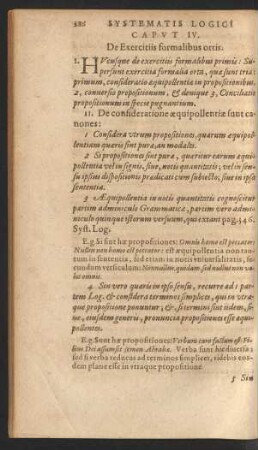 SYSTEMATIS LOGICI
CAPVT IV.
De Exercitiis formalibus ortis.
I. HUcusque de exercitiis formalibus primis: Su-
persunt exercitia formalia orta, quæ sunt tria:
primum, consideratio æquipollentiæ in propositionibus.
2, conversio propositionum, & denique 3, Conciliatio
propositionum in specie pugnantium.
II. De consideratione æquipollentiæ sunt ca-
nones:
1 Considera utrum propositiones, quarum æquipol-
lentiam quæris sint puræ, an modales.
2 Si propositiones sint puræ, quæritur earum æqui-
pollentia vel in signis, sive, notis quantitatis; vel in sen-
su ipsius dispositionis prædicati cum subiecto, sive in ipsa
sententia.
3 Æquipollentia in notis quantitatis cognoscitur
partim adminiculo Grammatica, partim vero admi-
niculo cuiusque istorum versuum, qui extant pag. 346.
Syst. Log.
E.g. Si sint hæ propositiones: Omnis homo est peccator:
Nullus non homo est peccator: est æquipollentia non tan-
tum in sententia, sed in notis universalitatis, se-
cundum versiculum: Nonnullus, quidam, sed nullus non va-
let omnis.
4 Sin vero quæris in ipso sensu, recurre ad 1 par-
tem Log. & considera terminos simplices, qui in utra-
que propositione ponuntur, &, si termini sint iidem, si-
ve, eiusdem generis, pronuncia propositiones esse æqui-
pollentes.
E.g. Sunt hæ propositiones: Verbum caro factum est: Fi-
lius Dei assumsit semen Abrahæ. Verba sunt hic diversa:
sed si verba reducas ad terminos simplices, videbis eos-
dem plane esse in utraque propositione.
5 Sin